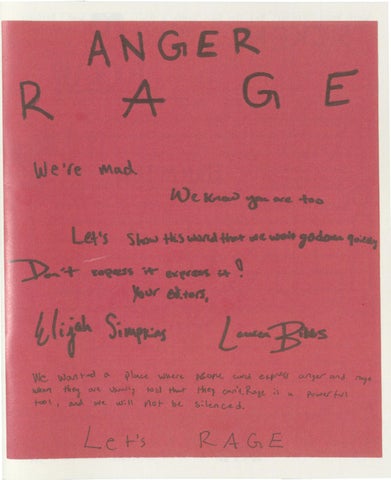 ANGER
RAGE
We're mad
We know you are too
Let's show this world that we wont go down quietly
Don't repess it express it!
Your editors,
Elijah Simpkins Lauren Bibbs
We wanted a place where people could express anger and rage
when they are usually told that they can't. Rage is a powerful
tool, and we will not be silenced.
Let's RAGE